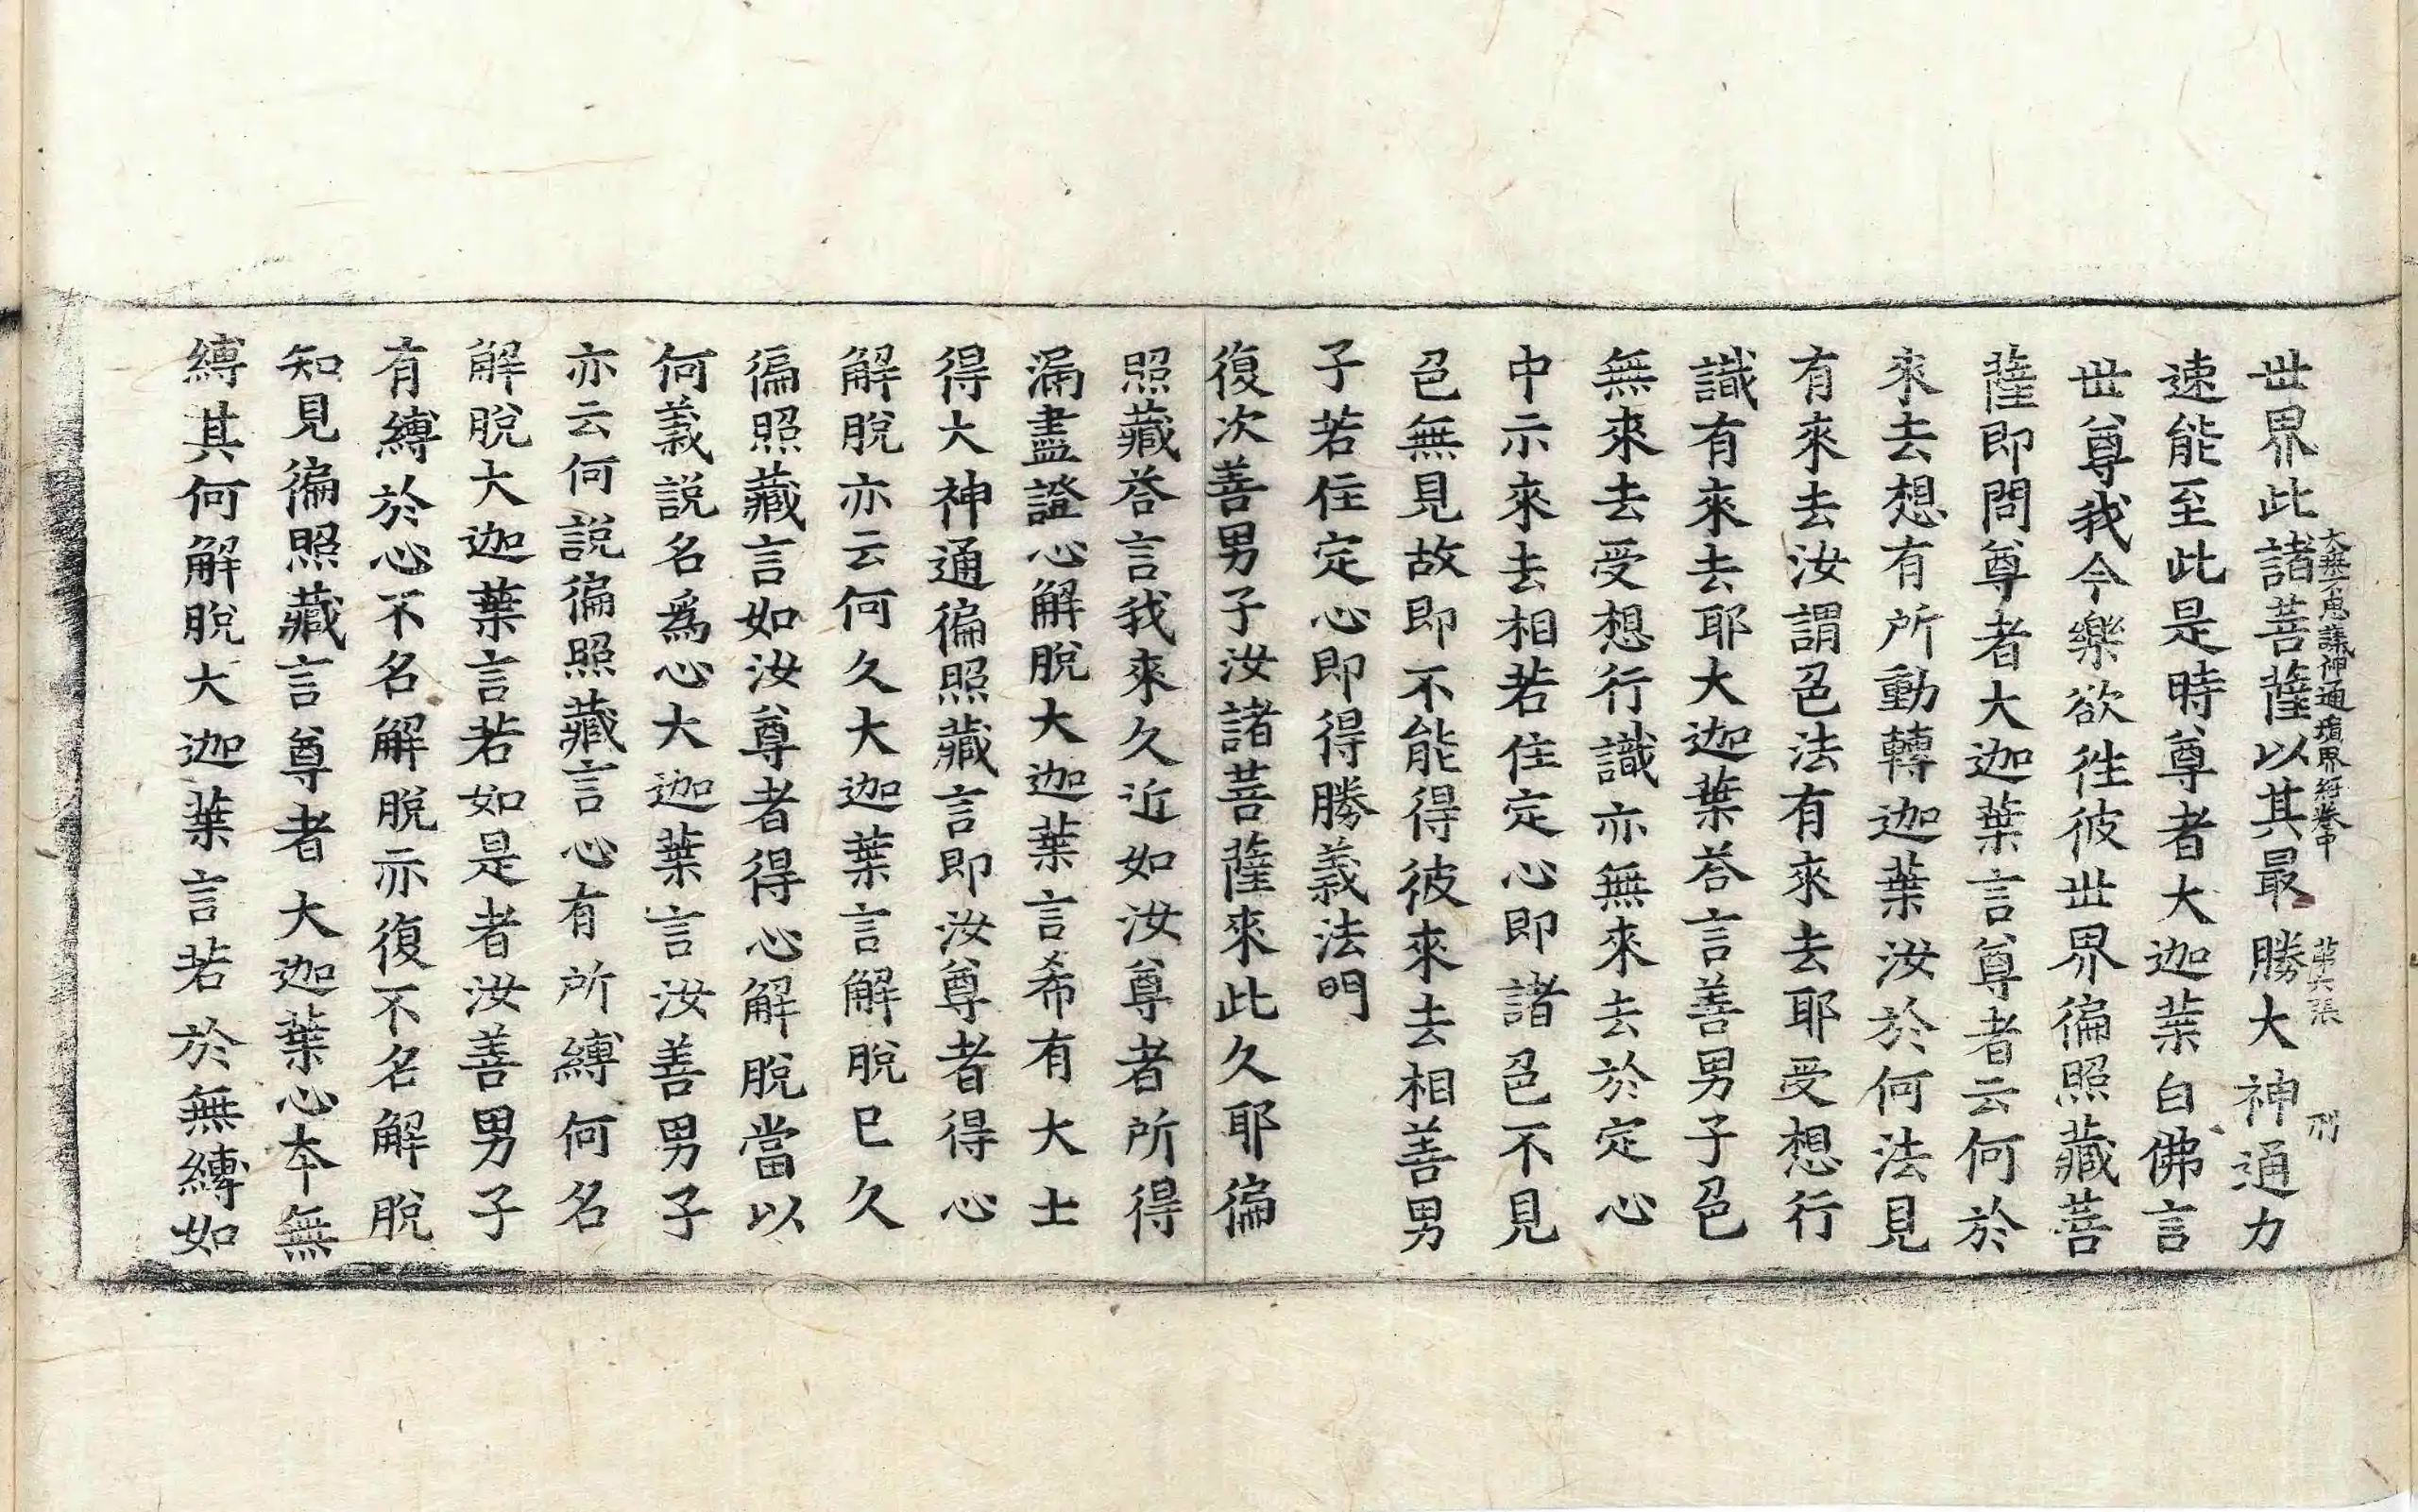 大乘不思議神通境界經卷中 第六張 刑
世界此諸菩薩以其最勝大神通力
速能至此是時尊者大迦葉白佛言
世尊我今樂欲徃彼世界徧照藏菩
薩即問尊者大迦葉言尊者云何於
來去想有所動轉迦葉汝於何法見
有來去汝謂色法有來去耶受想行
識有來去耶大迦葉荅言善男子色
無來去受想行識亦無來去於定心
中示來去相若住定心即諸色不見
色無見故即不能得彼來去相善男
子若住定心即得勝義法門
復次善男子汝諸菩薩來此久耶徧
照藏荅言我來久近如汝尊者所得
漏盡證心解脫大迦葉言希有大士
得大神通徧照藏言即汝尊者得心
解脫亦云何久大迦葉言解脫巳久
徧照藏言如汝尊者得心解脫當以
何義説名爲心大迦葉言汝善男子
亦云何説徧照藏言心有所縛何名
解脫大迦葉言若如是者汝善男子
有縛於心不名解脫亦復不名解脫
知見徧照藏言尊者大迦葉心本無
縛其何解脫大迦葉言若於無縛如